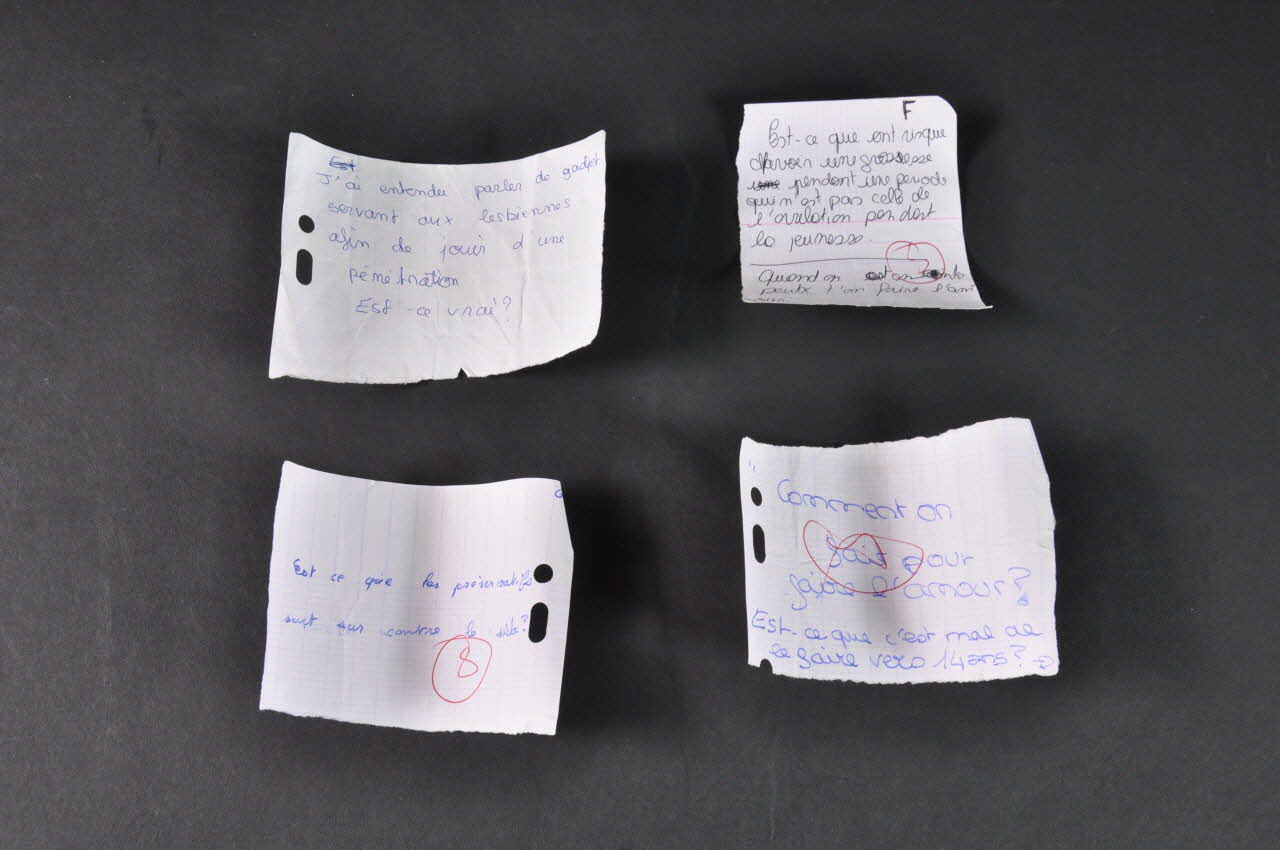 J'ai entendu parler de gadget
servant aux lesbiennes
afin de jouir d'une
pénétration
Est-ce vrai?
F
Est-ce que ont risque
d'avoir une grossesse
pendent une periode
qui n'est pas celle de
l'ovulation pendent
la jeunesse.
Quand on est
peutx l'on faire l'am
Est ce que les préservatifs
sont sur contre le sida?
8
Comment on
fait pour
faire l'amour?
Est-ce que c'est mal de
le faire vers 14 ans?